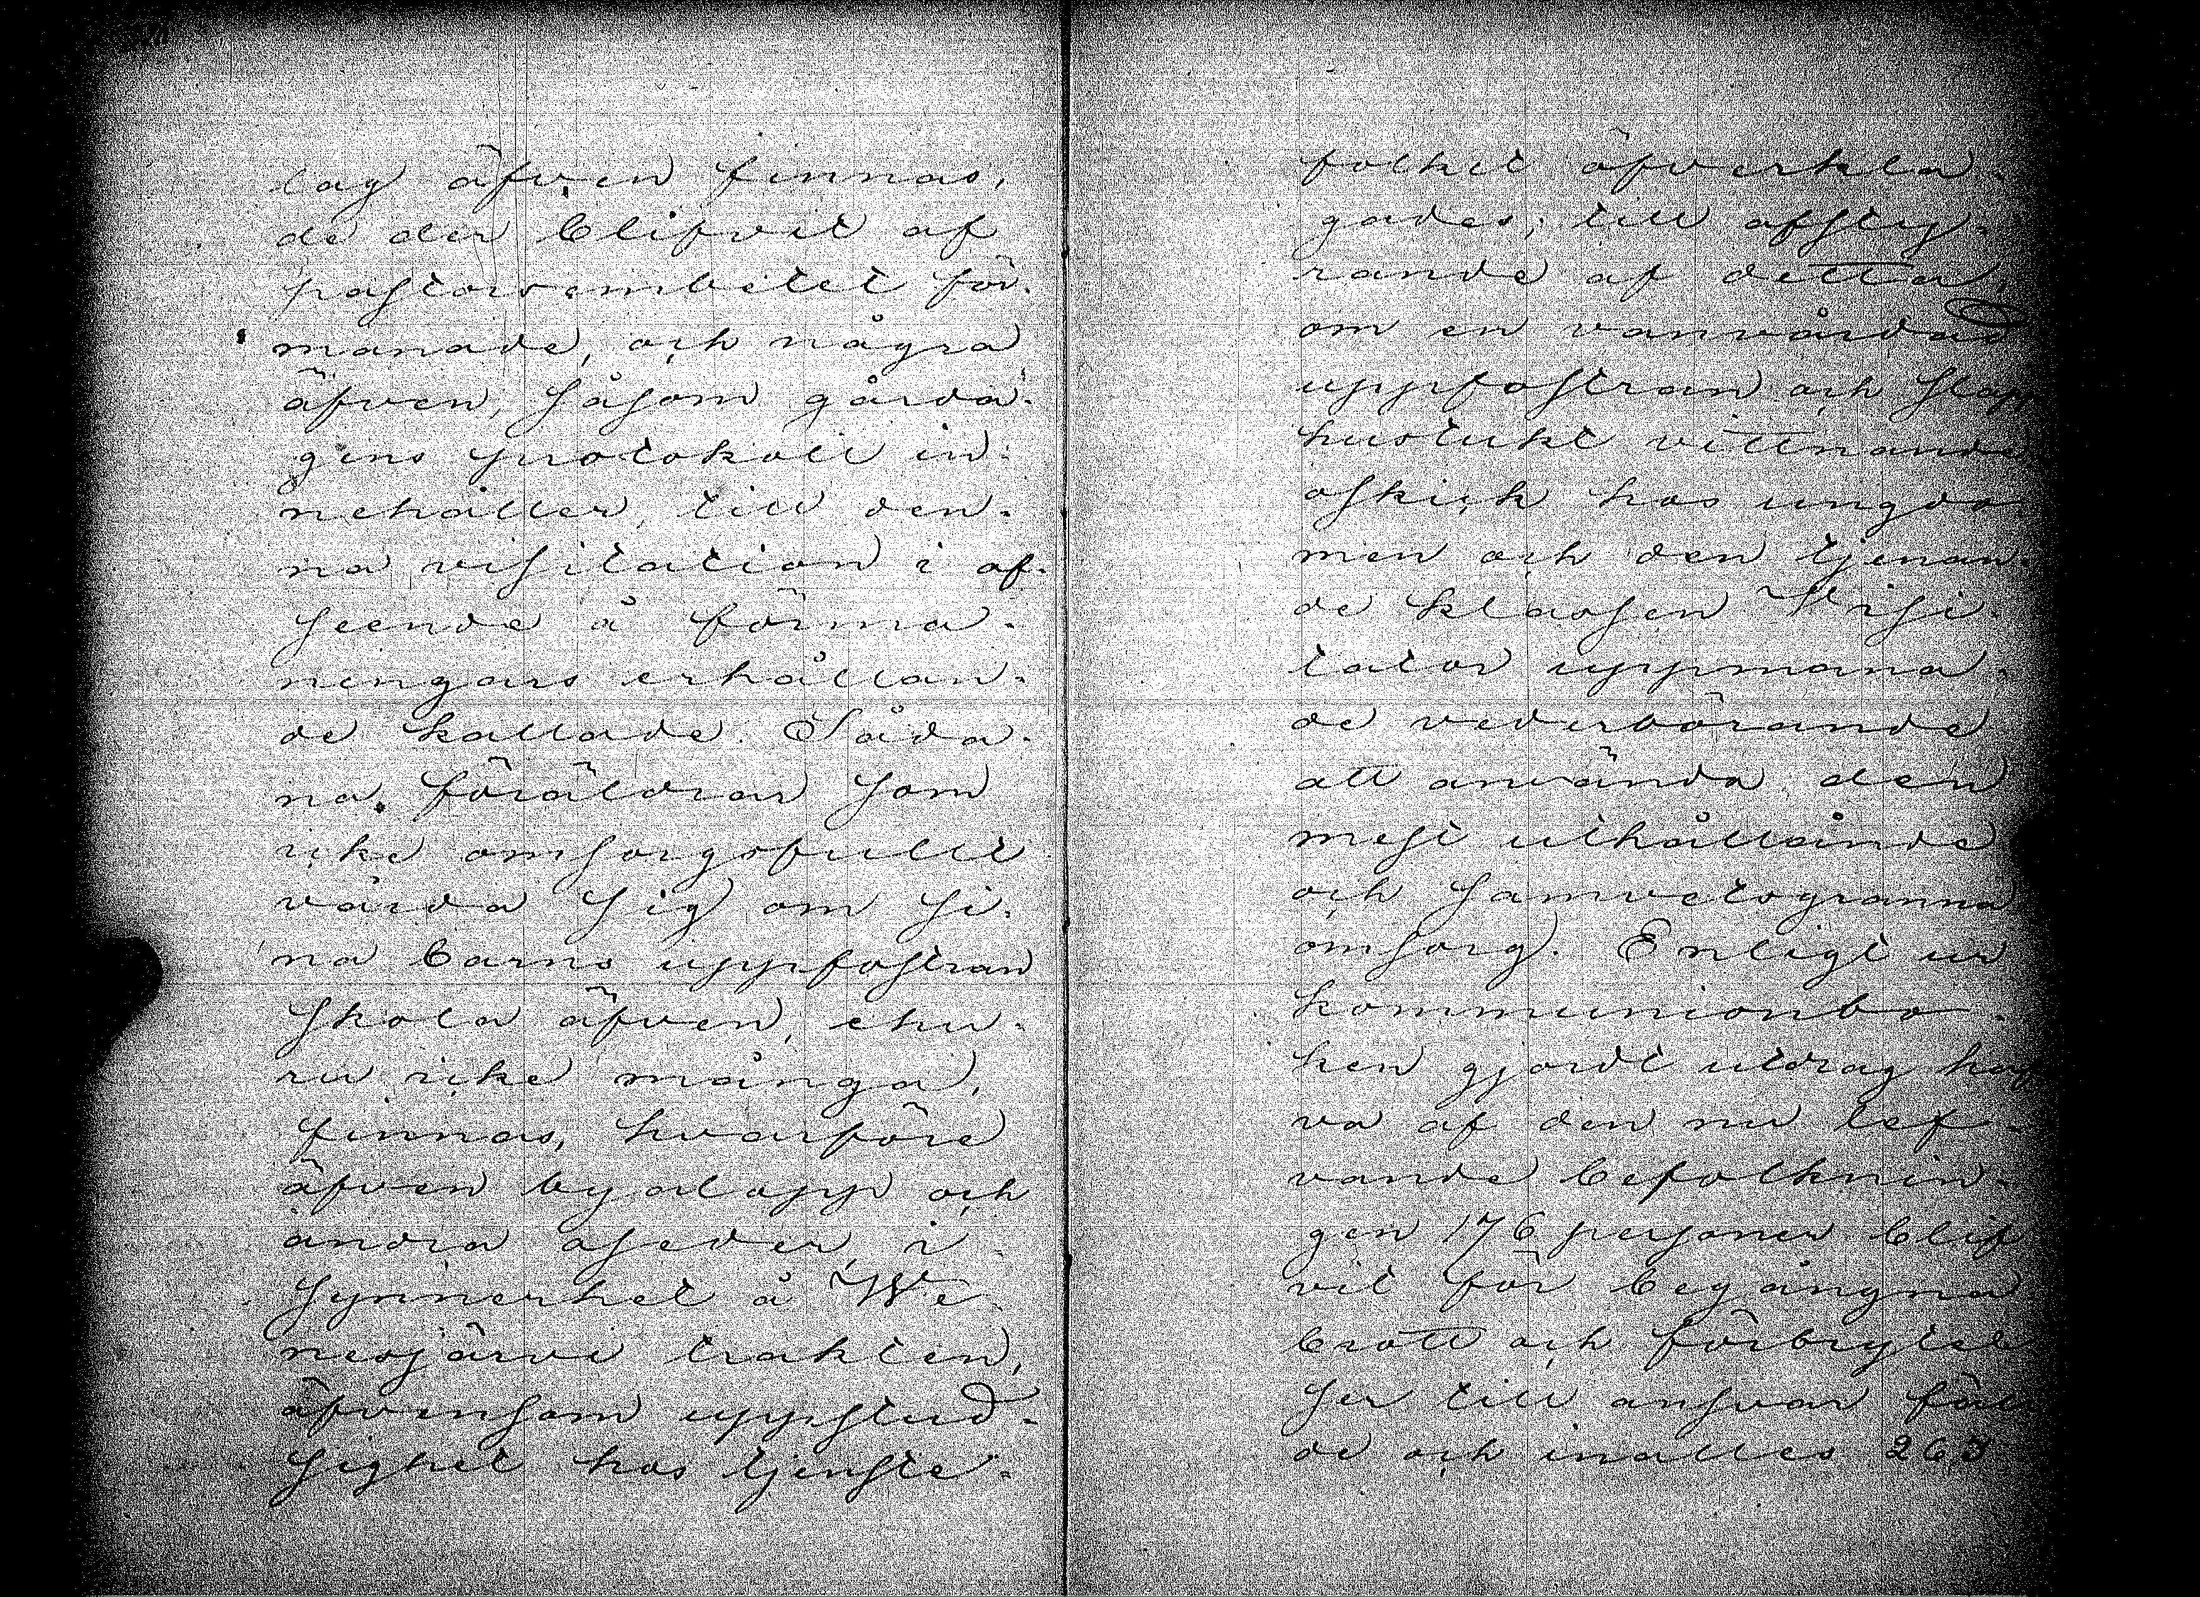 lag äfven finnas,
de der blifvit af
pastorsembetet för-
manade, och några
äfven, såsom gårda-
gens protokoll in-
nehåller, till den-
na visitation i af-
seende å förma-
ningars erhållan-
de kallade. Såda-
na föräldrar som
icke omsorgsfullt
vårda sig om si-
na barns uppfostran
skola äfven, ehu-
ru icke många,
finnas, hvarföre
äfven byalopp och
andra oseder, i
synnerhet å We-
nesjärvi trakten,
äfvensom uppstud-
sighet hos tjenste-
folket öfverkla-
gades; till afsty-
rande af detta,
om en vanvårdad
uppfostran och slapp
hustukt vittnande
oskick hos ungdo-
men och den tjenan-
de klassen Visi-
tator uppmana-
de vederbörande
att använda den
mest uthållande
och samvetsgranna
omsorg. Enligt ur
kommunionbo-
ken gjordt utdrag haf
va af den nu lef-
vande befolknin-
gen 176 personer blif
vit för begångna
brott och förbrytel
ser till ansvar fäl
de och inalles 263